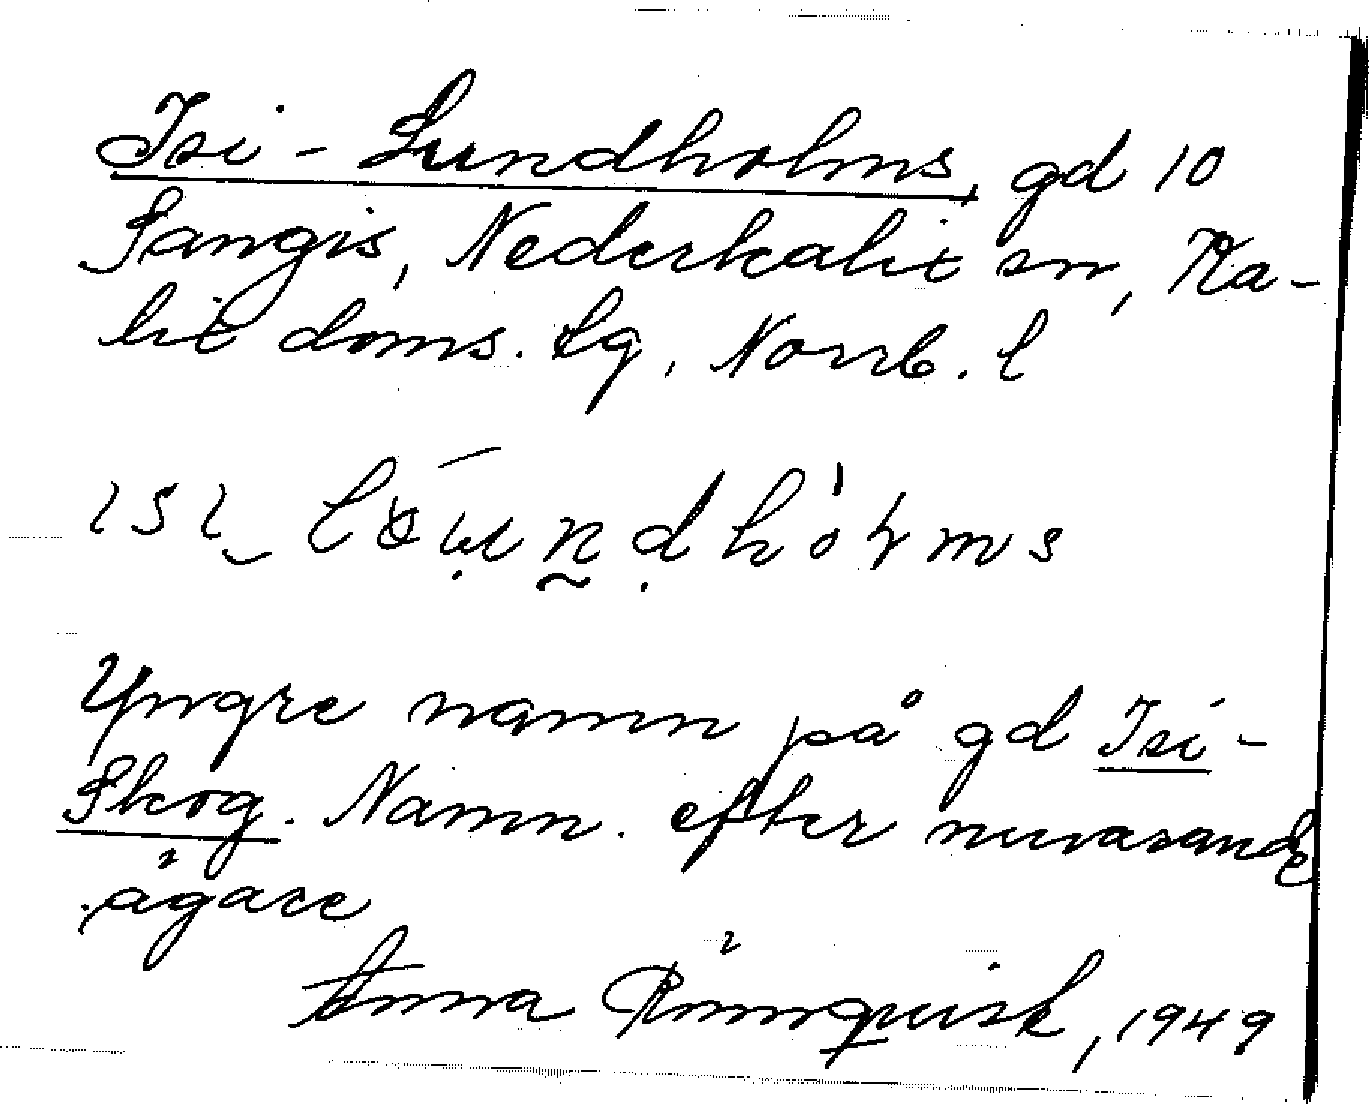 Isi-Lundholms, gd 10
Sangis, Nederkalix sn, Ka-
lix doms. lg, Norrb. l
Yngre namn på gd Isi-
Skog. Namn. efter nuvarande
ägare
Anna Rönnquist, 1949